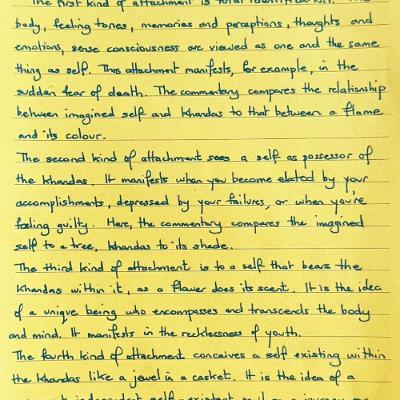 The first kind of attachment is total identification. The
body, feeling tones, memories and perceptions, thoughts and
emotions, sense consciousness are viewed as one and the same
thing as self. This attachment manifests, for example, in the
sudden fear of death. The commentary compares the relationship
between imagined self and Khandas to that between a flame
and its colour.
The second kind of attachment sees a self as possessor of
the Khandas. It manifests when you become elated by your
accomplishments, depressed by your failures, or when you're
feeling guilty. Here, the commentary compares the imagined
self to a tree, Khandas to its shade.
The third kind of attachment is to a self that bears the
Khandas within it, as a flower does its scent. It is the idea
of a unique being who encompasses and transcends the body
and mind. It manifests in the recklessness of youth.
The fourth kind of attachment conceives a self existing within
the Khandas like a jewel in a casket. It is the idea of a
independent self-existent soul on a journey